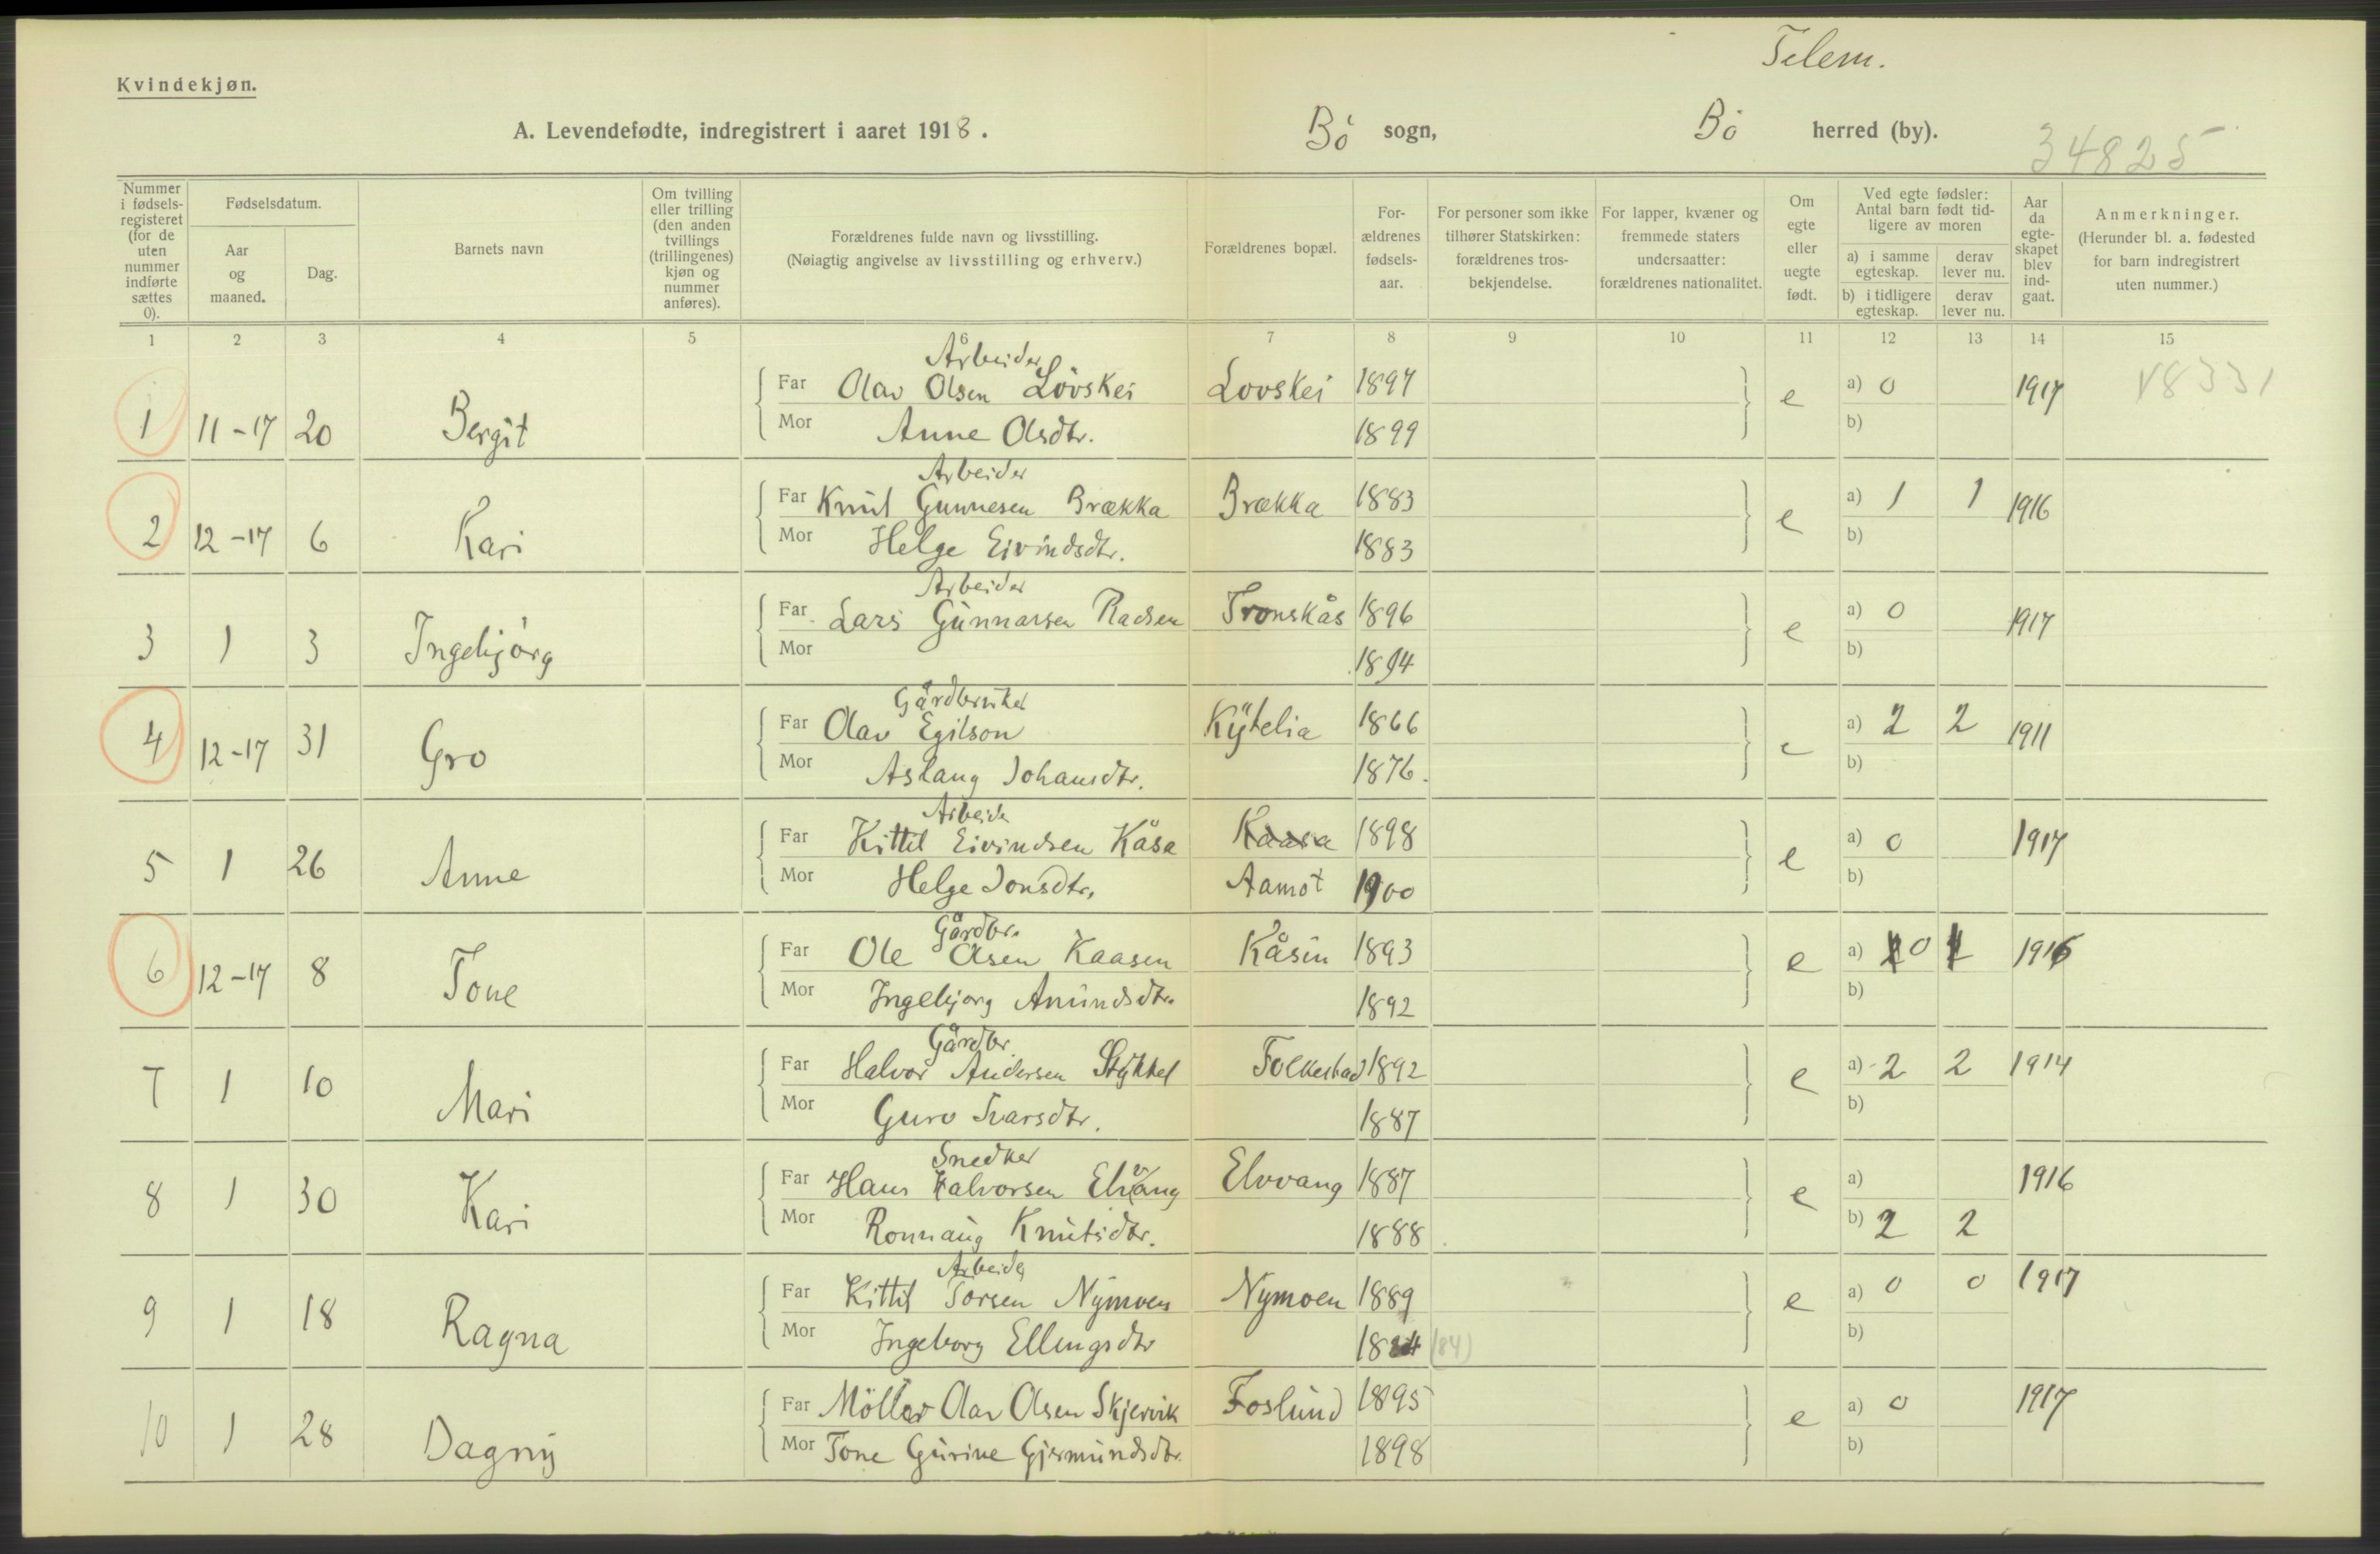 Telem.
Kvindekjøn.
A. Levendefødte, indregistrert i aaret 1918.
Bö sogn, Bö herred (by).
34825
Nummer i fødsels-registeret (for de uten nummer indførte sættes 0).
Fødselsdatum.
Aar og maaned.
Dag.
Barnets navn
Om tvilling eller trilling (den anden tvillings (trillingenes) kjøn og nummer anføres).
Forældrenes fulde navn og livsstilling.
(Nøiagtig angivelse av livsstilling og erhverv.)
Forældrenes bopæl.
For-ældrenes fødsels-aar.
For personer som ikke tilhører Statskirken: forældrenes tros-bekjendelse.
For lapper, kvæner og fremmede staters undersaatter: forældrenes nationalitet.
Om egte eller uegte født.
Ved egte fødsler: Antal barn født tid-ligere av moren
a) i samme egteskap.
derav lever nu.
b) i tidligere egteskap.
derav lever nu.
Aar da egte-skapet blev ind-gaat.
Anmerkninger.
(Herunder bl. a. fødested for barn indregistrert uten nummer.)
1 2 3 4 5 6 7 8 9 10 11 12 13 14 15
Arbeider
Far Olav Olsen Lövskei Lovskei 1897 a) 0 1917 18331
1 11-17 20 Bergit e
Mor Anne Olsdtr. 1899 b)
Arbeider
Far Knut Gunnesen Brækka Brækka 1883 a) 1 1 1916
2 12-17 6 Kari e
Mor Helge Eivindsdtr. 1883 b)
Arbeider
Far Lars Gunnarsen Radsen Tronskås 1896 a) 0 1917
3 1 3 Ingebjörg e
Mor 1894 b)
Gårdbruker
Far Olav Egilson Kytelia 1866 a) 2 2 1911
4 12-17 31 Gro e
Mor Aslaug Johansdtr. 1876. b)
Arbeider
Far Kittil Eivindsen Kåsa Kaasa 1898 a) 0 1917
5 1 26 Anne e
Mor Helge Jonsdtr. Aamot 1900 b)
Gårdbr.
Far Ole Olsen Kaasen Kåsin 1893 a) 0 1916
6 12-17 8 Tone e
Mor Ingebjorg Anundsdtr. 1892 b)
Gårdbr.
Far Halvor Andersen Stykket Folkestad 1892 a) 2 2 1914
7 1 10 Mari e
Mor Guro Ivarsdtr. 1887 b)
Snedker
Far Hans Halvorsen Elvvang Elvvang 1887 a) 1916
8 1 30 Kari e
Mor Ronnaug Knutsdtr. 1888 b) 2 2
Arbeider
Far Kittil Torsen Nymoen Nymoen 1889 a) 0 0 1917
9 1 18 Ragna e
Mor Ingeborg Ellingsdtr 1884 (84) b)
Far Möller Olav Olsen Skjervik Foslund 1895 a) 0 1917
10 1 28 Dagny e
Mor Tone Gurine Gjermundsdtr. 1898 b)